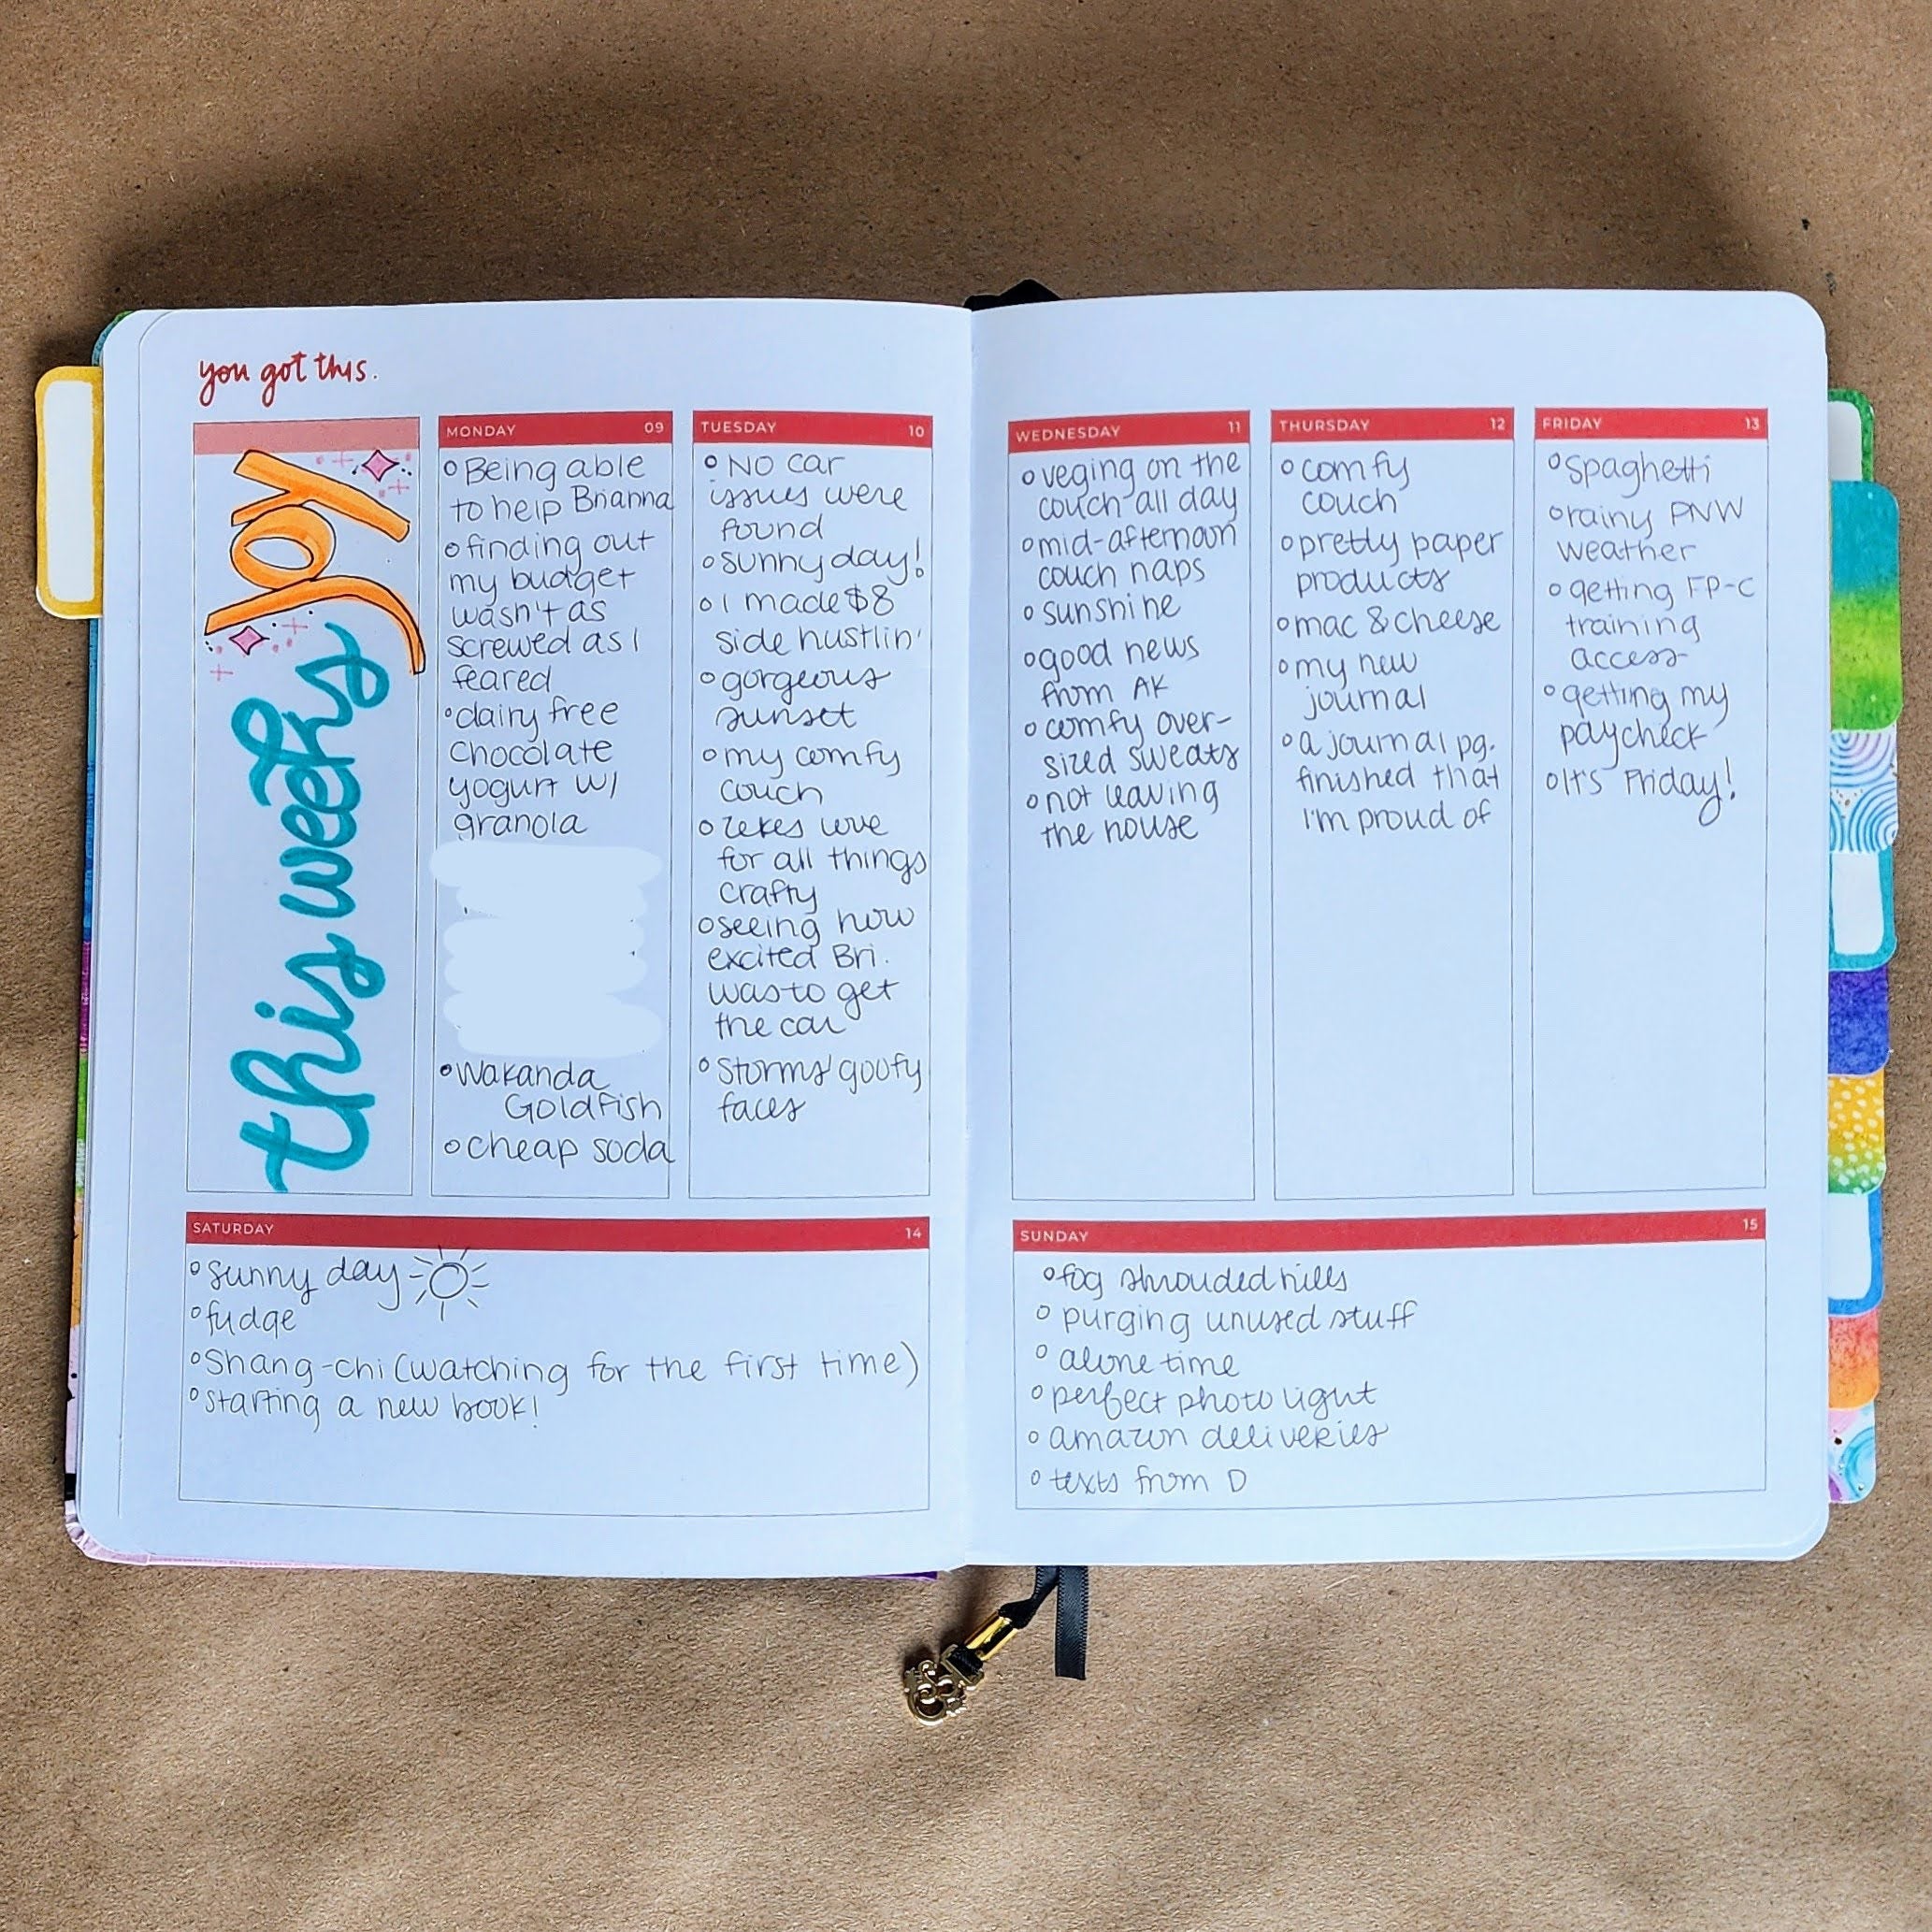 you got this.
this weeks
joy
MONDAY 09
○ Being able
to help Brianna
○ finding out
my budget
wasn't as
screwed as I
feared
○ dairy free
chocolate
yogurt w/
granola
○ Wakanda
Goldfish
○ cheap soda
TUESDAY 10
○ NO car
issues were
found
○ sunny day!
○ I made $8
side hustlin'
○ gorgeous
sunset
○ my comfy
couch
○ zekes love
for all things
crafty
○ seeing how
excited Bri.
was to get
the car
○ Storms' goofy
faces
WEDNESDAY 11
○ veging on the
couch all day
○ mid-afternoon
couch naps
○ sunshine
○ good news
from AK
○ comfy over-
sized sweats
○ not leaving
the house
THURSDAY 12
○ comfy
couch
○ pretty paper
products
○ mac & cheese
○ my new
journal
○ a journal pg.
finished that
I'm proud of
FRIDAY 13
○ spaghetti
○ rainy PNW
weather
○ getting FP-C
training
access
○ getting my
paycheck
○ It's Friday!
SATURDAY 14
○ sunny day
○ fudge
○ Shang-chi (watching for the first time)
○ starting a new book!
SUNDAY 15
○ fog shrouded hills
○ purging unused stuff
○ alone time
○ perfect photo light
○ amazon deliveries
○ texts from D